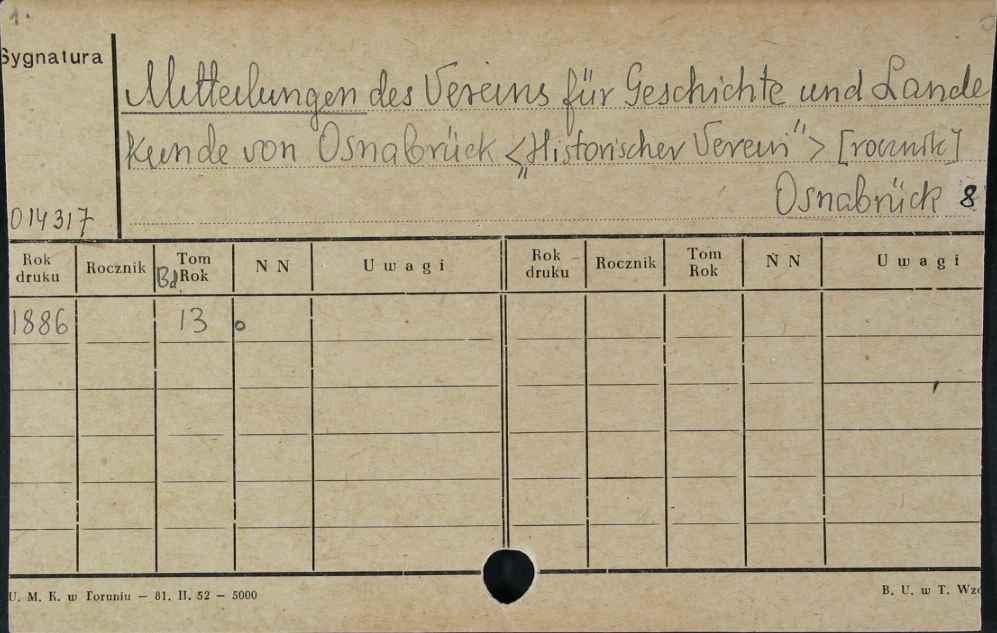 1.
Sygnatura
Mitteilungen des Vereins für Geschichte und Lande
Kunde von Osnabrück <„Historischer Verein"> [rocznik]
Osnabrück 8
014317
Rok druku Rocznik Bd Tom Rok N N Uwagi Rok druku Rocznik Tom Rok N N Uwagi
1886 13
U. M. K. w Toruniu — 81. II. 52 — 5000
B. U. w T. Wzó